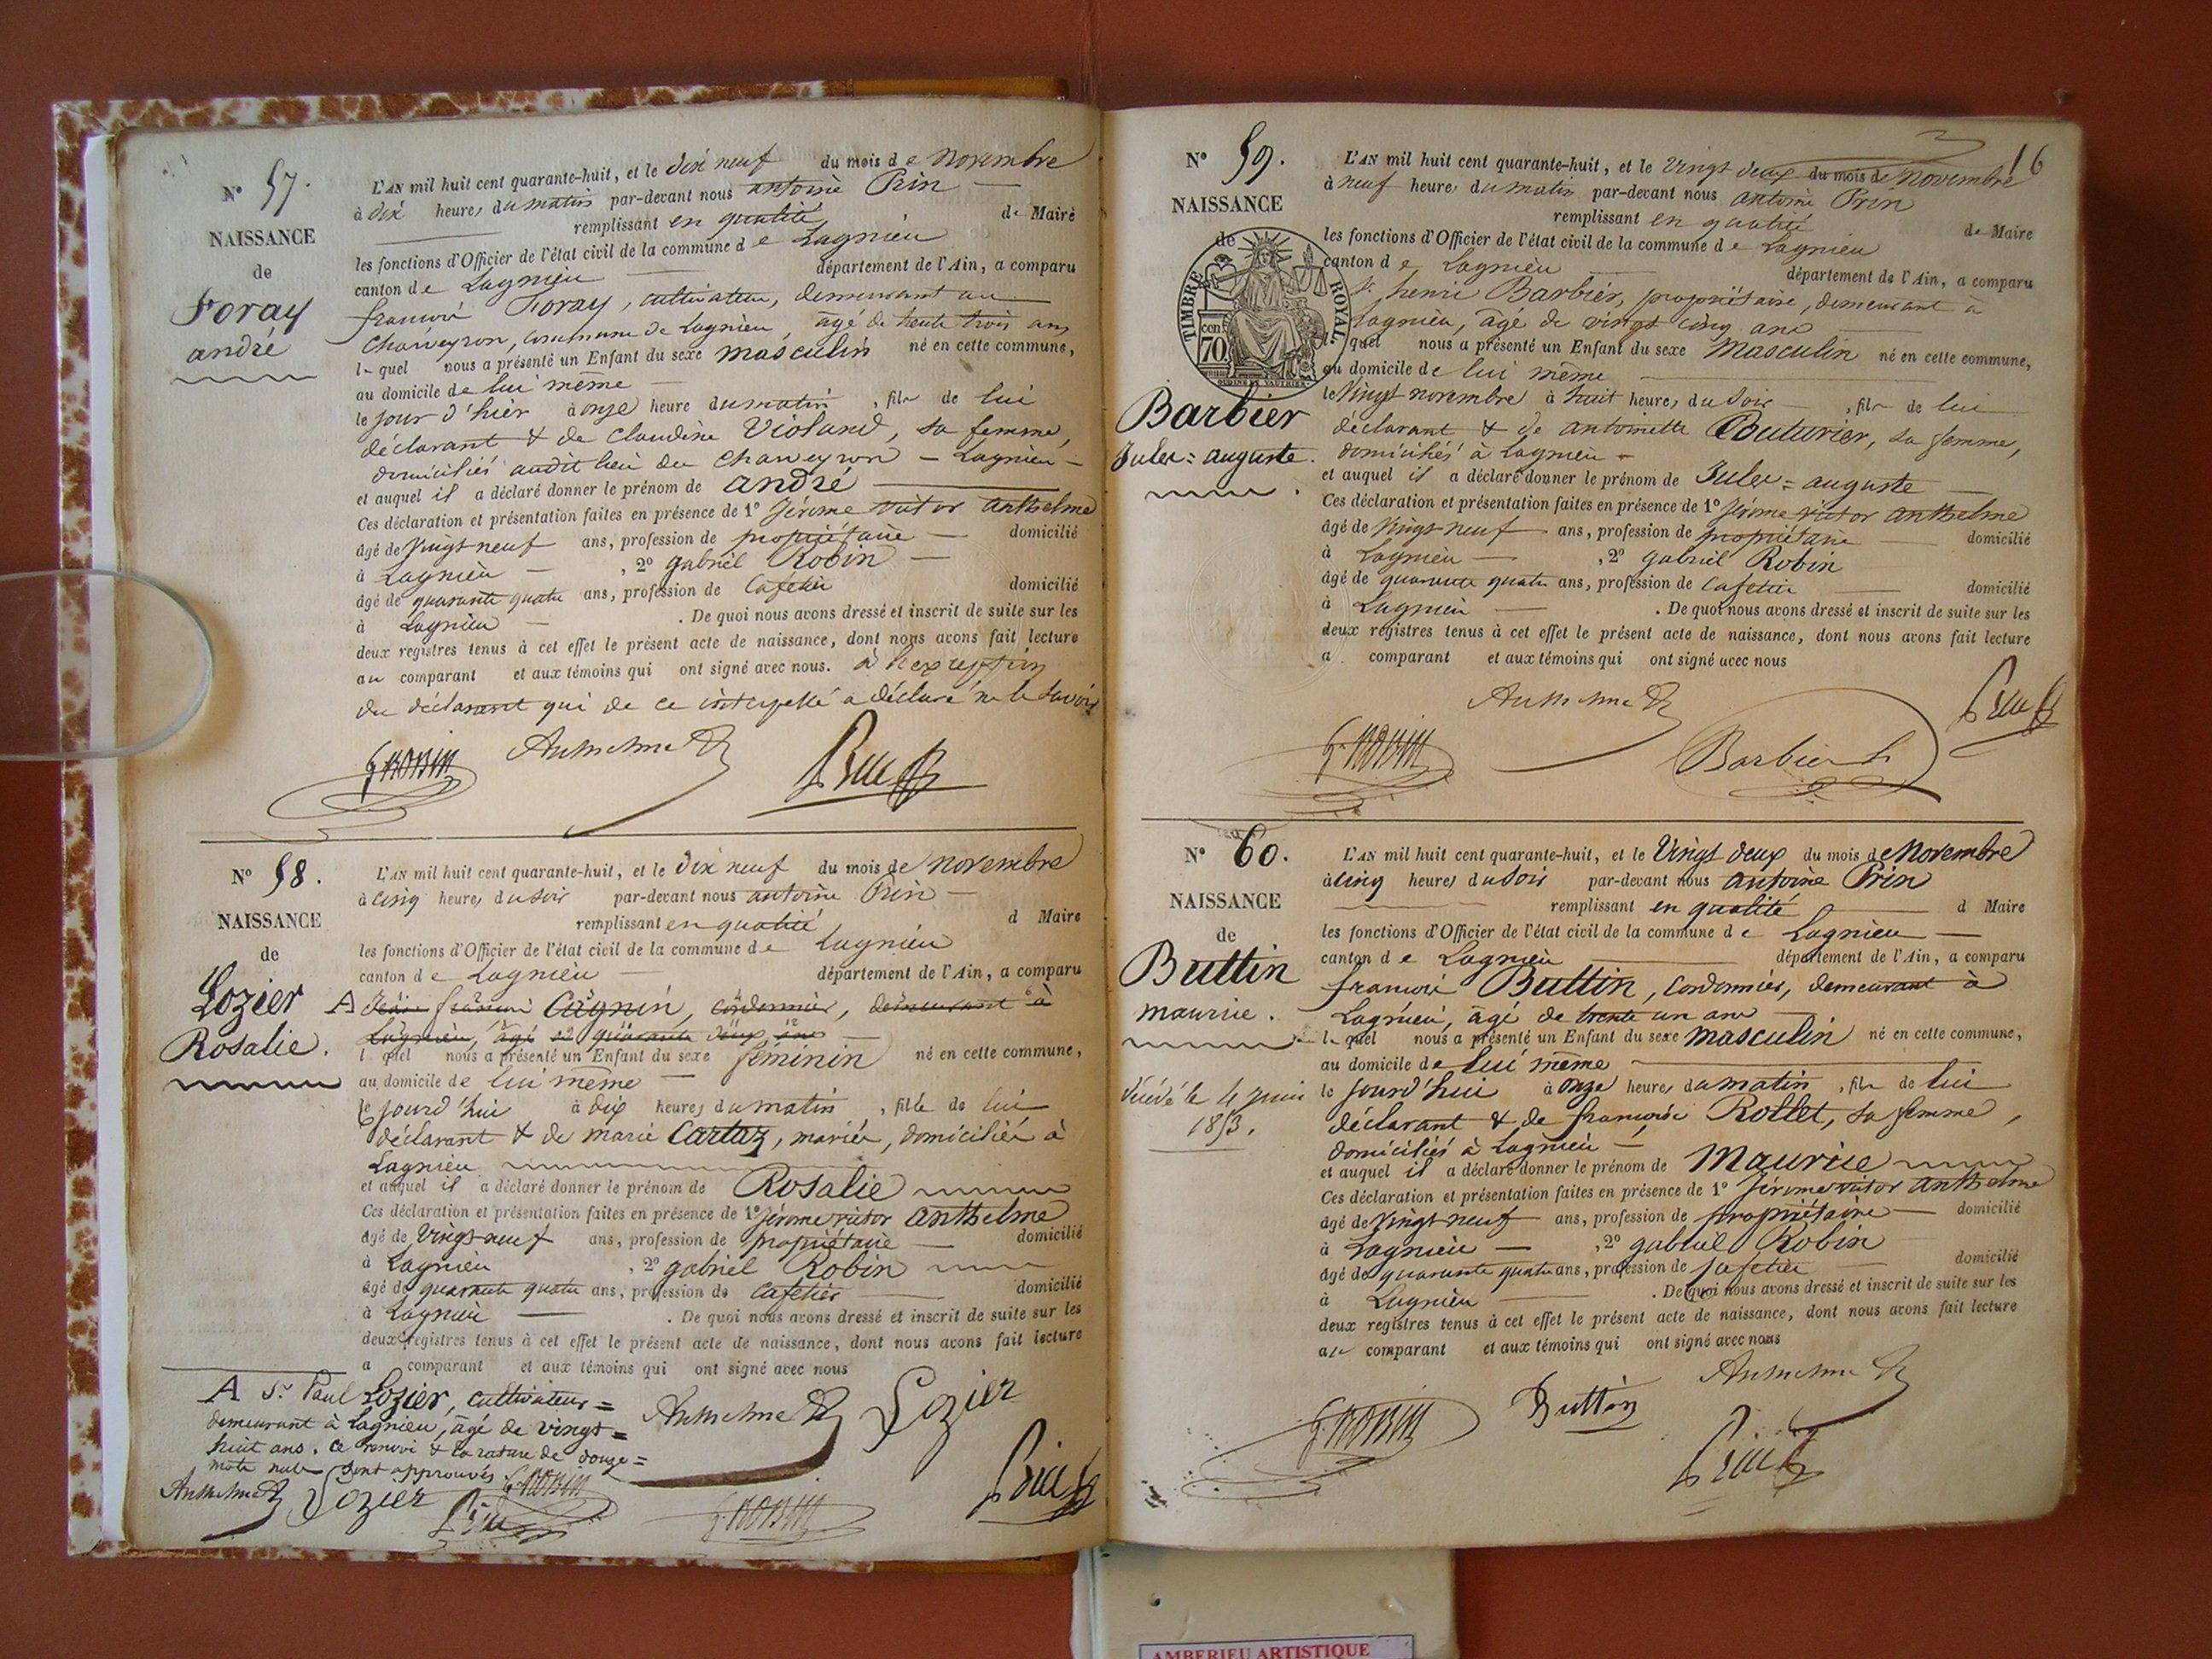 N° 57.
NAISSANCE
de
Foray
andré
L'AN mil huit cent quarante-huit, et le dix neuf du mois de novembre
à dix heures du matin par-devant nous antoine Prin
remplissant en qualité de Maire
les fonctions d'Officier de l'état civil de la commune de Lagnieu
canton de Lagnieu département de l'Ain, a comparu
françois Foray, cultivateur, demeurant au
Charveyron, commune de Lagnieu, âgé de trente trois ans
lequel nous a présenté un Enfant du sexe masculin né en cette commune,
au domicile de lui même
le jour d'hier à onze heure du matin, fils de lui
déclarant & de Claudine Violand, sa femme,
domiciliés audit lieu du Charveyron - Lagnieu -
et auquel il a déclaré donner le prénom de andré
Ces déclaration et présentation faites en présence de 1° Jérome victor anthelme
âgé de vingt neuf ans, profession de propriétaire domicilié
à Lagnieu, 2° gabriel Robin
âgé de quarante quatre ans, profession de Cafetier domicilié
à Lagnieu. De quoi nous avons dressé et inscrit de suite sur les
deux registres tenus à cet effet le présent acte de naissance, dont nous avons fait lecture
au comparant et aux témoins qui ont signé avec nous. à l'exception
du déclarant qui de ce interpellé a déclaré ne le savoir
G. ROBIN Anthelme Prin
N° 58.
NAISSANCE
de
Lozier
Rosalie.
L'AN mil huit cent quarante-huit, et le dix neuf du mois de novembre
à cinq heures du soir par-devant nous antoine Prin
remplissant en qualité d Maire
les fonctions d'Officier de l'état civil de la commune de Lagnieu
canton de Lagnieu département de l'Ain, a comparu
A Jean françois Cagnin, cordonnier, demeurant à
Lagnieu, âgé de quarante deux ans
l quel nous a présenté un Enfant du sexe féminin né en cette commune,
au domicile de lui même
le jourd'hui à dix heures du matin, fille de lui
déclarant & de marie Cartaz, mariés, domiciliés à
Lagnieu
et auquel il a déclaré donner le prénom de Rosalie
Ces déclaration et présentation faites en présence de 1° Jérome victor anthelme
âgé de vingt neuf ans, profession de propriétaire domicilié
à Lagnieu, 2° gabriel Robin
âgé de quarante quatre ans, profession de Cafetier domicilié
à Lagnieu. De quoi nous avons dressé et inscrit de suite sur les
deux registres tenus à cet effet le présent acte de naissance, dont nous avons fait lecture
a comparant et aux témoins qui ont signé avec nous
A Sr Paul Lozier, cultivateur =
demeurant à Lagnieu, âgé de vingt =
huit ans. Ce renvoi & la rature de douze =
mots nuls sont approuvés
Anthelme Lozier Prin G. ROBIN
Anthelme Lozier
G. ROBIN Prin
16
N° 59.
NAISSANCE
de
TIMBRE ROYAL
70 cen
Barbier
Jules = auguste.
L'AN mil huit cent quarante-huit, et le vingt deux du mois de Novembre
à neuf heures du matin par-devant nous antoine Prin
remplissant en qualité de Maire
les fonctions d'Officier de l'état civil de la commune de Lagnieu
canton de Lagnieu département de l'Ain, a comparu
Sr henri Barbier, propriétaire, demeurant à
Lagnieu, âgé de vingt cinq ans
lequel nous a présenté un Enfant du sexe Masculin né en cette commune,
au domicile de lui même
le vingt novembre à huit heures du soir, fils de lui
déclarant & de antoinette Couturier, sa femme,
domiciliés à Lagnieu -
et auquel il a déclaré donner le prénom de Jules = auguste
Ces déclaration et présentation faites en présence de 1° Jérome victor anthelme
âgé de vingt neuf ans, profession de propriétaire domicilié
à Lagnieu, 2° gabriel Robin
âgé de quarante quatre ans, profession de Cafetier domicilié
à Lagnieu. De quoi nous avons dressé et inscrit de suite sur les
deux registres tenus à cet effet le présent acte de naissance, dont nous avons fait lecture
a comparant et aux témoins qui ont signé avec nous
Anthelme Prin
G. ROBIN Barbier h
N° 60.
NAISSANCE
de
Buttin
maurice.
décédé le 4 juin
1853.
L'AN mil huit cent quarante-huit, et le Vingt deux du mois de Novembre
à cinq heures du soir par-devant nous antoine Prin
remplissant en qualité d Maire
les fonctions d'Officier de l'état civil de la commune de Lagnieu
canton de Lagnieu département de l'Ain, a comparu
françois Buttin, cordonnier, demeurant à
Lagnieu, âgé de trente un ans
lequel nous a présenté un Enfant du sexe masculin né en cette commune,
au domicile de lui même
le jourd'hui à onze heures du matin, fils de lui
déclarant & de françoise Rollet, sa femme,
domiciliés à Lagnieu
et auquel il a déclaré donner le prénom de Maurice
Ces déclaration et présentation faites en présence de 1° Jérome victor anthelme
âgé de vingt neuf ans, profession de propriétaire domicilié
à Lagnieu, 2° gabriel Robin
âgé de quarante quatre ans, profession de Cafetier domicilié
à Lagnieu. De quoi nous avons dressé et inscrit de suite sur les
deux registres tenus à cet effet le présent acte de naissance, dont nous avons fait lecture
au comparant et aux témoins qui ont signé avec nous
Anthelme
G. ROBIN Buttin Prin
AMBERIEU ARTISTIQUE